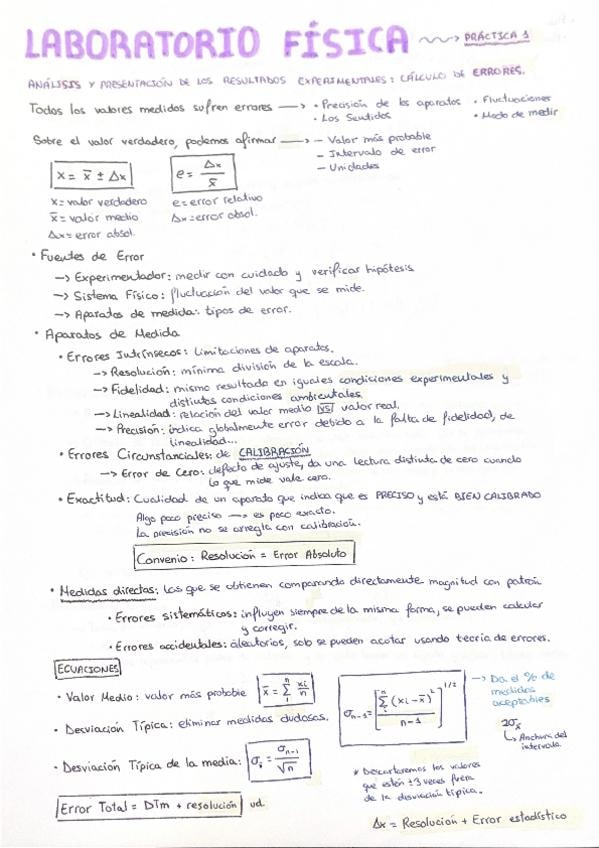 LABORATORIO FÍSICA ~~> PRÁCTICA 1
ANÁLISIS Y PRESENTACIÓN DE LOS RESULTADOS EXPERIMENTALES: CÁLCULO DE ERRORES.
Todos los valores medidos sufren errores —> • Precisión de los aparatos • Fluctuaciones
• Los Sentidos • Modo de medir
Sobre el valor verdadero, podemos afirmar —> – Valor más probable
– Intervalo de error
– Unidades
x = x̄ ± Δx
e = Δx / x̄
x = valor verdadero e = error relativo
x̄ = valor medio Δx = error absol.
Δx = error absol.
• Fuentes de Error
—> Experimentador: medir con cuidado y verificar hipótesis
—> Sistema Físico: fluctuación del valor que se mide.
—> Aparatos de medida: tipos de error.
• Aparatos de Medida
• Errores Intrínsecos: Limitaciones de aparatos.
—> Resolución: mínima división de la escala.
—> Fidelidad: mismo resultado en iguales condiciones experimentales y
distintas condiciones ambientales.
—> Linealidad: relación del valor medio VS valor real.
—> Precisión: indica globalmente error debido a la falta de fidelidad, de
linealidad...
• Errores Circunstanciales: de CALIBRACIÓN
—> Error de Cero: defecto de ajuste, da una lectura distinta de cero cuando
lo que mide vale cero.
• Exactitud: Cualidad de un aparato que indica que es PRECISO y está BIEN CALIBRADO
Algo poco preciso —> es poco exacto.
La precisión no se arregla con calibración.
Convenio: Resolución = Error Absoluto
• Medidas directas: Las que se obtienen comparando directamente magnitud con patrón
• Errores sistemáticos: influyen siempre de la misma forma, se pueden calcular
y corregir.
• Errores accidentales: aleatorios, solo se pueden acotar usando teoría de errores.
ECUACIONES
• Valor Medio: valor más probable x̄ = Σ₁ⁿ xi/n
• Desviación Típica: eliminar medidas dudosas.
σₙ₋₁ = [Σᵢⁿ (xi – x̄)² / n–1]^1/2
—> Da el % de
medidas
aceptables
2σx̄
↳ Anchura del
intervalo.
• Desviación Típica de la media: σᵢ = σₙ₋₁ / √n
* Descartaremos los valores
que estén ±3 veces fuera
de la desviación típica.
Error Total = DTm + resolución ud.
Δx = Resolución + Error estadístico